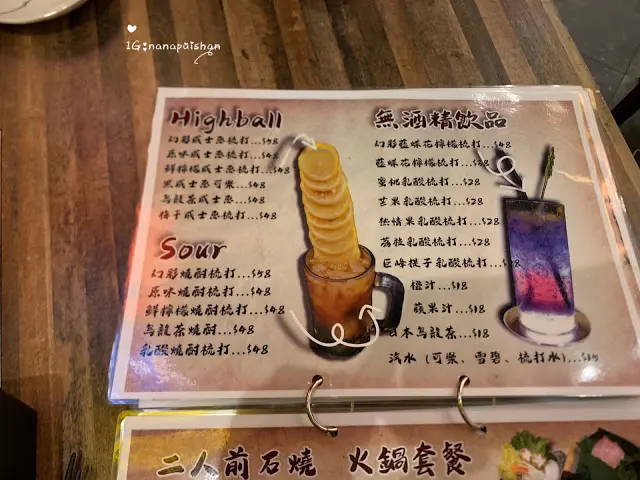 IG:nanapaishan
Highball
幻彩威士忌梳打...$58
原味威士忌梳打...$48
鮮檸威士忌梳打...$48
黑威士忌可樂...$48
烏龍茶威士忌...$48
梅子威士忌梳打...$48
Sour
幻彩燒酎梳打...$58
原味燒酎梳打...$48
鮮檸燒酎梳打...$48
烏龍茶燒酎...$48
乳酸燒酎梳打...$48
無酒精飲品
幻彩藍蝶花檸檬梳打...$48
藍蝶花檸檬梳打...$28
蜜桃乳酸梳打...$28
芒果乳酸梳打...$28
熱情果乳酸梳打...$28
荔枝乳酸梳打...$28
巨峰提子乳酸梳打...$28
橙汁...$18
蘋果汁...$18
日本烏龍茶...$18
汽水 (可樂、雪碧、梳打水)...
二人前石燒 火鍋套餐